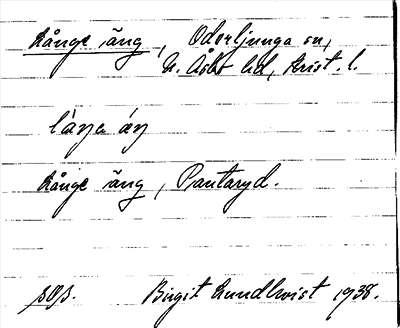 Långe äng, Oderljunga sn,
N. Åsbo hd, Krist. l.
Långe äng, Pantaryd.
søs. Birgit Lundkvist 1938.